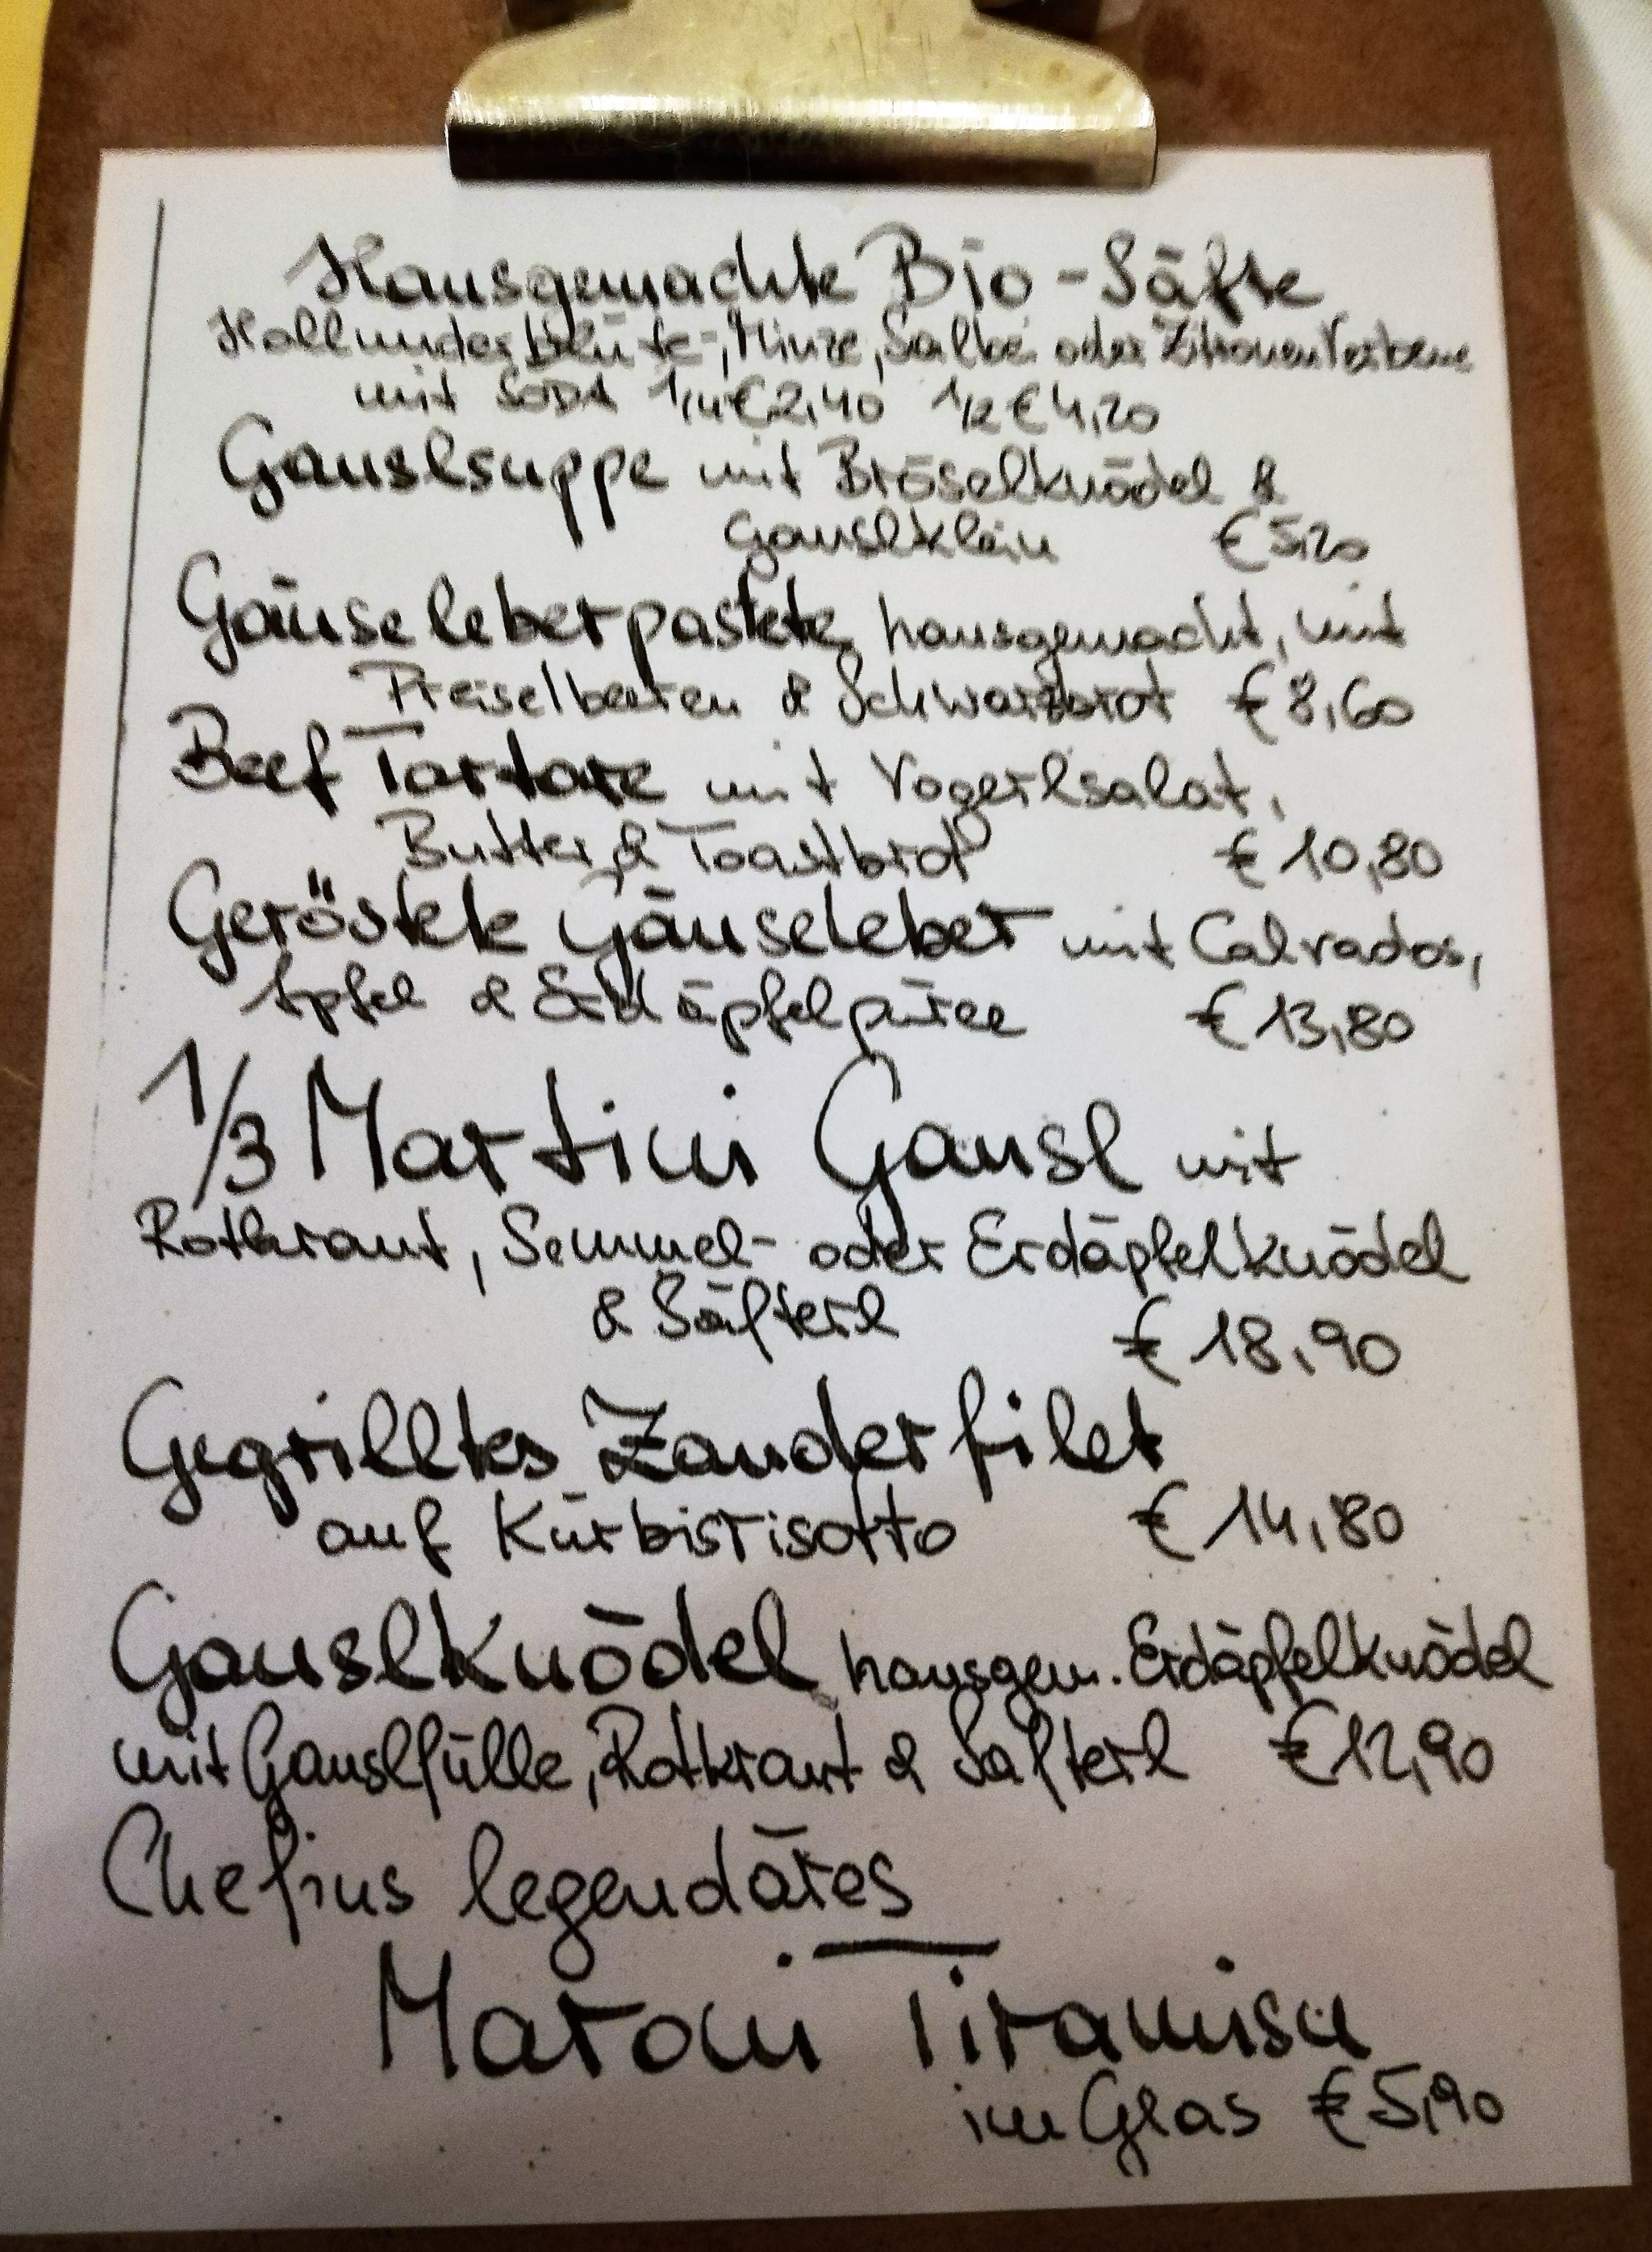 Hausgemachte Bio-Säfte
Hollunderblüte-, Minze, Salbei oder Zitronenverbene
mit SODA 1/4 € 2,40 1/2 € 4,20
Gauslsuppe mit Bröselknödel &
Gauslklein € 5,20
Gäuseleberpastete, hausgemacht, mit
Preiselbeeren & Schwarzbrot € 8,60
Beef Tartare mit Vogerlsalat,
Butter & Toastbrot € 10,80
Geröstete Gänseleber mit Calvados,
Apfel & Erdäpfelpüree € 13,80
1/3 Martini Gansl mit
Rotkraut, Semmel- oder Erdäpfelknödel
& Säfterl € 18,90
Gegrilltes Zanderfilet
auf Kürbisrisotto € 14,80
Ganslknödel hausgem. Erdäpfelknödel
mit Ganslfülle, Rotkraut & Safterl € 12,90
Chefins legendäres
Maroni Tiramisu
im Glas € 5,90